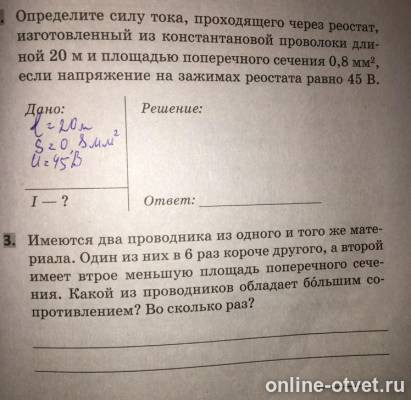 Определите силу тока, проходящего через реостат,
изготовленный из константановой проволоки дли-
ной 20 м и площадью поперечного сечения 0,8 мм²,
если напряжение на зажимах реостата равно 45 В.
Дано: Решение:
l = 20м
S = 0,8мм²
U = 45В
I — ? Ответ:
3. Имеются два проводника из одного и того же мате-
риала. Один из них в 6 раз короче другого, а второй
имеет втрое меньшую площадь поперечного сече-
ния. Какой из проводников обладает бо́льшим со-
противлением? Во сколько раз?
online-otvet.ru